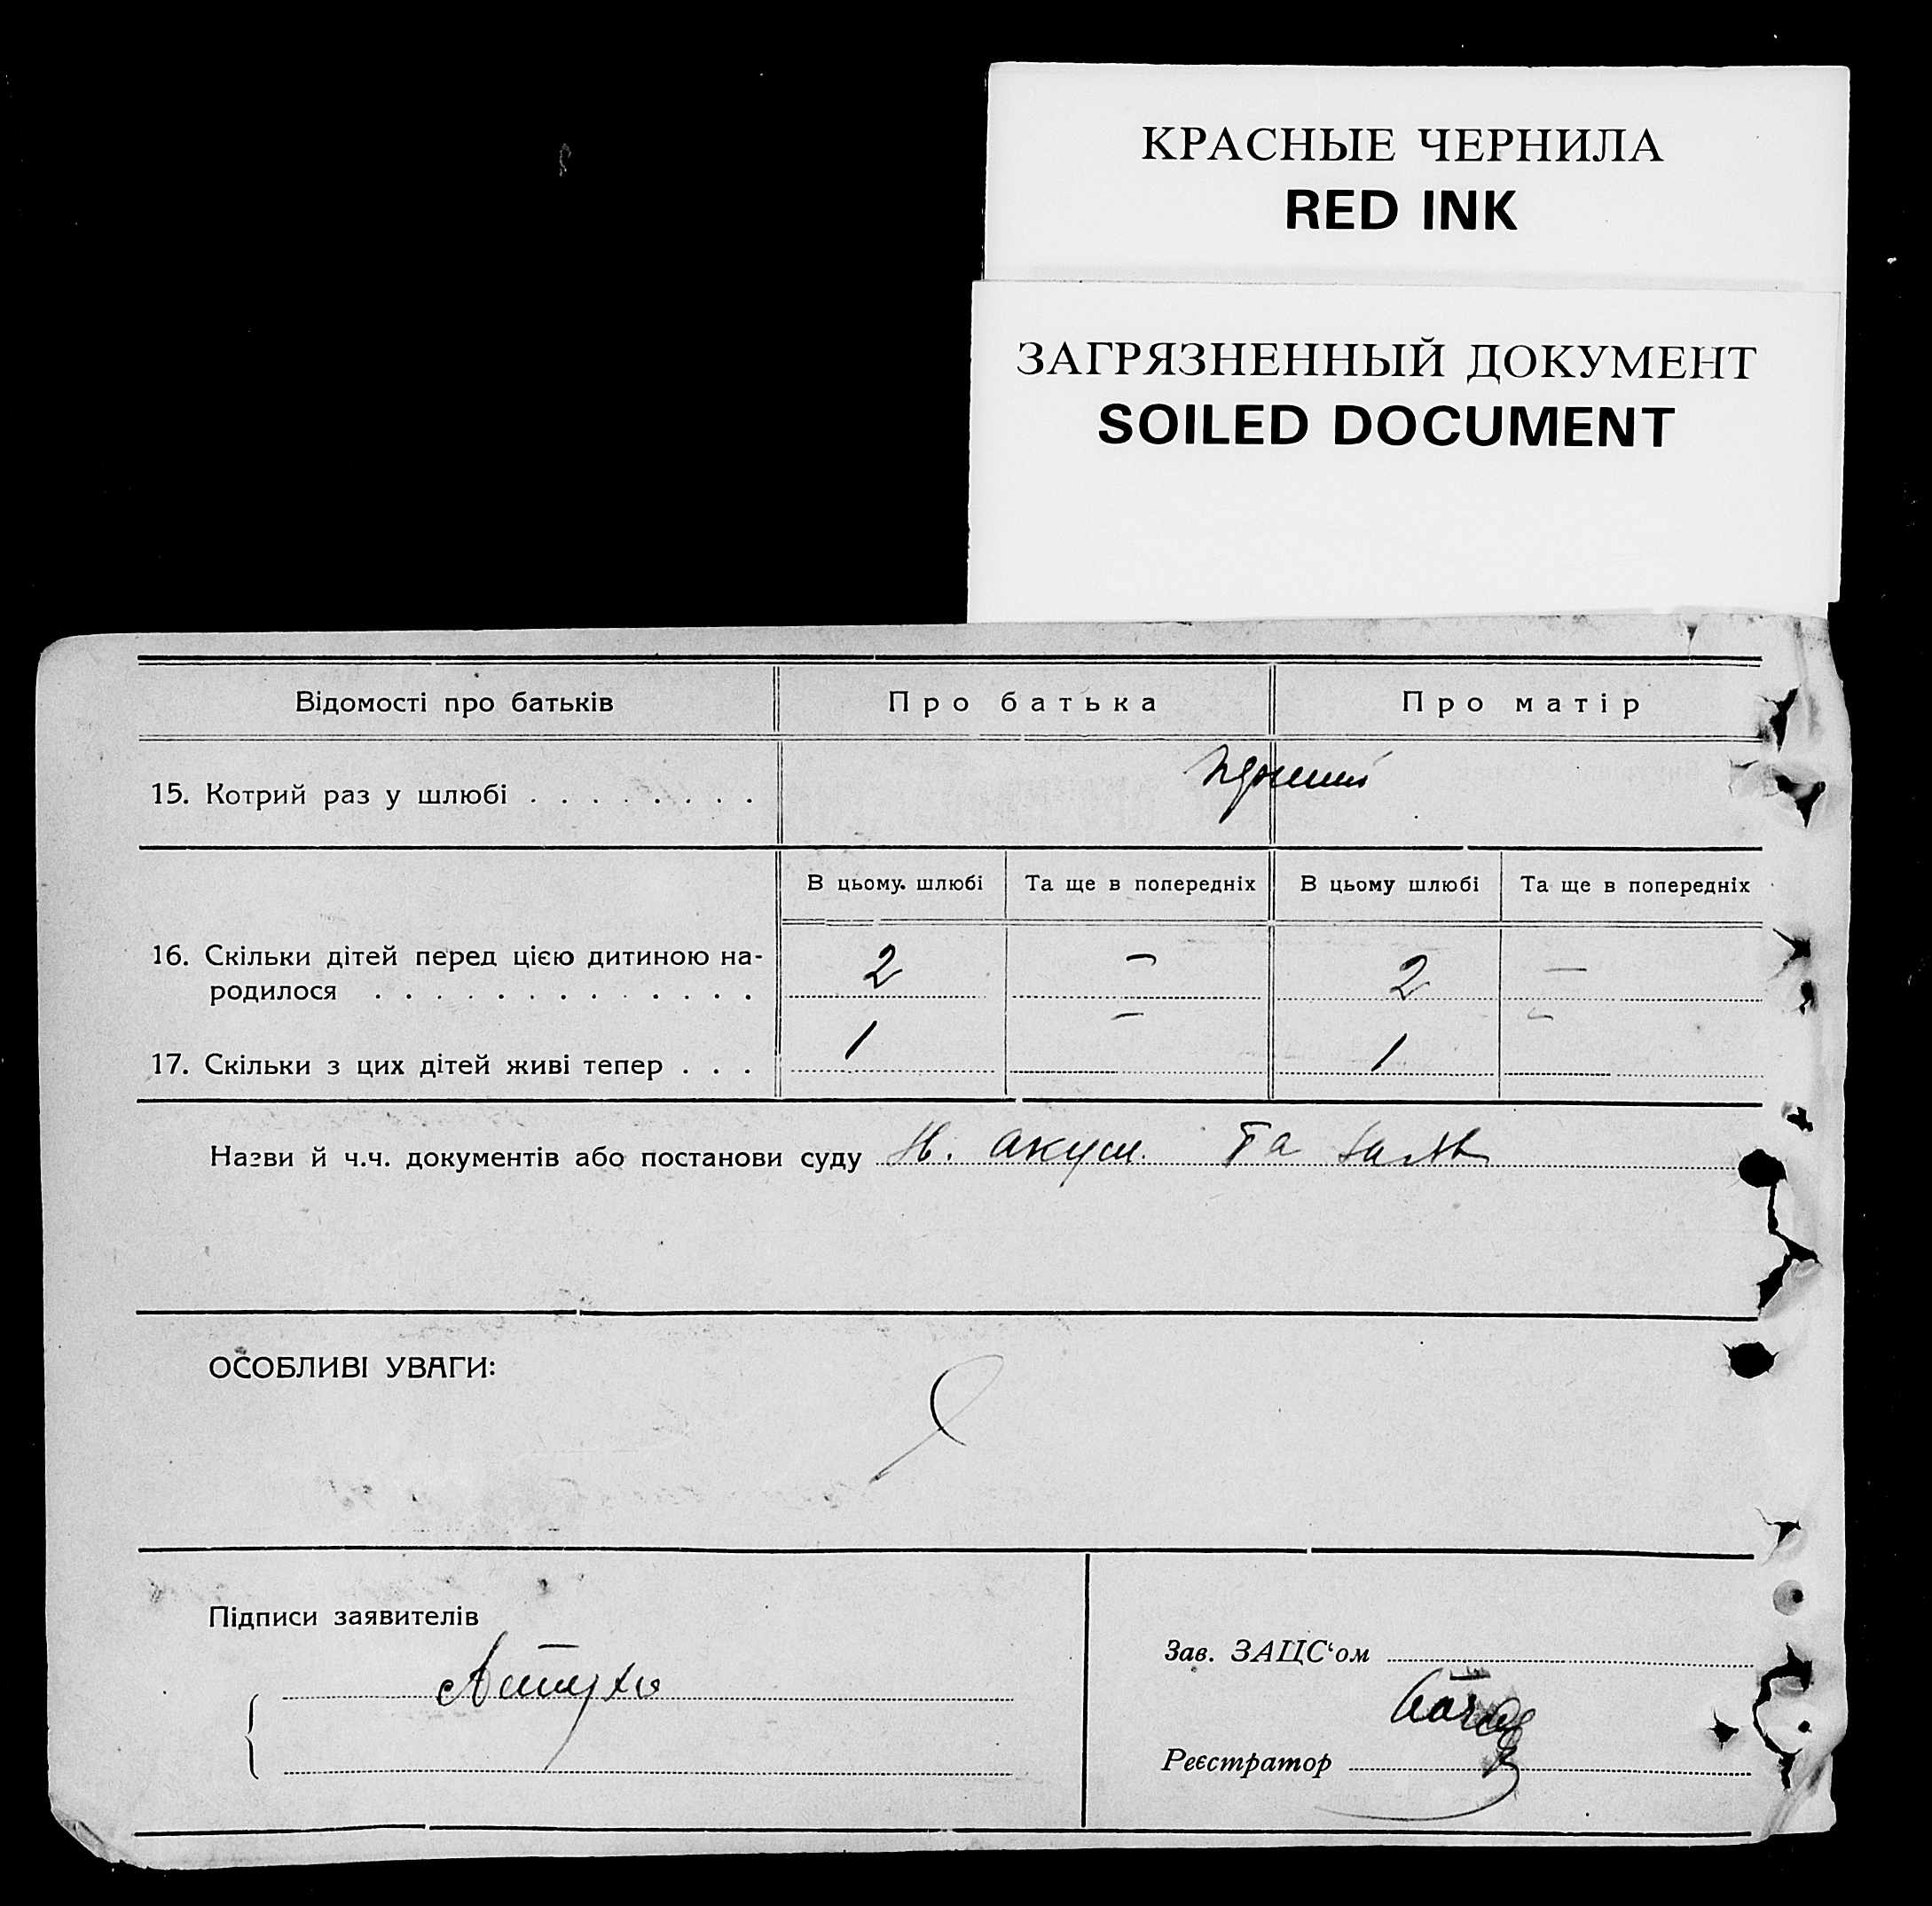 КРАСНЫЕ ЧЕРНИЛА
RED INK
ЗАГРЯЗНЕННЫЙ ДОКУМЕНТ
SOILED DOCUMENT
Відомості про батьків Про батька Про матір
15. Котрий раз у шлюбі . . . . . . . .
В цьому. шлюбі Та ще в попередніх В цьому шлюбі Та ще в попередніх
16. Скільки дітей перед цією дитиною на-
родилося . . . . . . . . . . . . . 2 — 2 —
17. Скільки з цих дітей живі тепер . . . 1 — 1 —
Назви й ч.ч. документів або постанови суду акуш. Та
ОСОБЛИВІ УВАГИ:
Підписи заявителів
Зав. ЗАЦС‘ом
Реєстратор